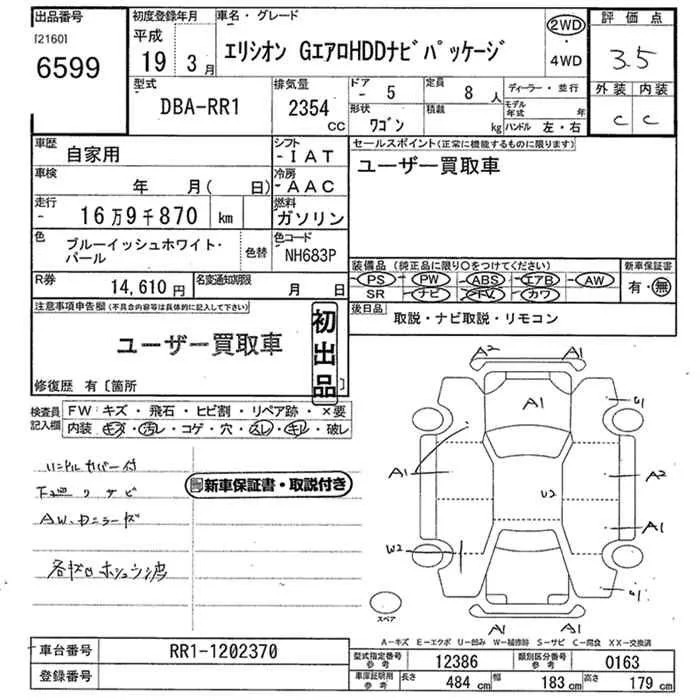 出品番号
[2160]
6599
初度登録年月
平成
19年 3月
車名・グレード
エリシオン GエアロHDDナビパッケージ
2WD
・
4WD
評価点
3.5
外装 内装
C C
型式
DBA-RR1
排気量
2354 CC
ドア
- 5
定員
8 人
ディーラー・並行
形状
ワゴン
積載
kg
モデル年式 年
ハンドル 左・右
車歴
自家用
シフト
-IAT
車検
年 月( 日)
冷房
-AAC
走行
- 16万9千870 km
燃料
ガソリン
色
ブルーイッシュホワイト・パール
色替
色コード
NH683P
R券
14,610円
名変通知期限
月 日
セールスポイント(正常に機能するものに限ります)
ユーザー買取車
装備品(純正品に限り〇をつけてください)
PS PW ABS エアB AW
SR ナビ TV カワ
新車保証書
有・無
後日品
取説・ナビ取説・リモコン
注意事項申告欄(不具合内容等は具体的に記入して下さい)
ユーザー買取車
初出品
修復歴 有〔箇所 〕
検査員記入欄
FW:キズ・飛石・ヒビ割・リペア跡・×要
内装:キズ・汚レ・コゲ・穴・スレ・キレ・破レ
ハンドルカバー付
下廻りサビ
AW、カニラーズ
新車保証書・取説付き
A2 A1
A1
U1
A1
A2
U2
A1
W2
U1
A1 A1
スペア
A-キズ E-エクボ U-凹み W-補修跡 S-サビ C-腐食 XX-交換済
車台番号
RR1-1202370
登録番号
型式指定番号 参考
12386
類別区分番号 参考
0163
車庫証明用 参考
長さ 484 cm
幅 183 cm
高さ 179 cm